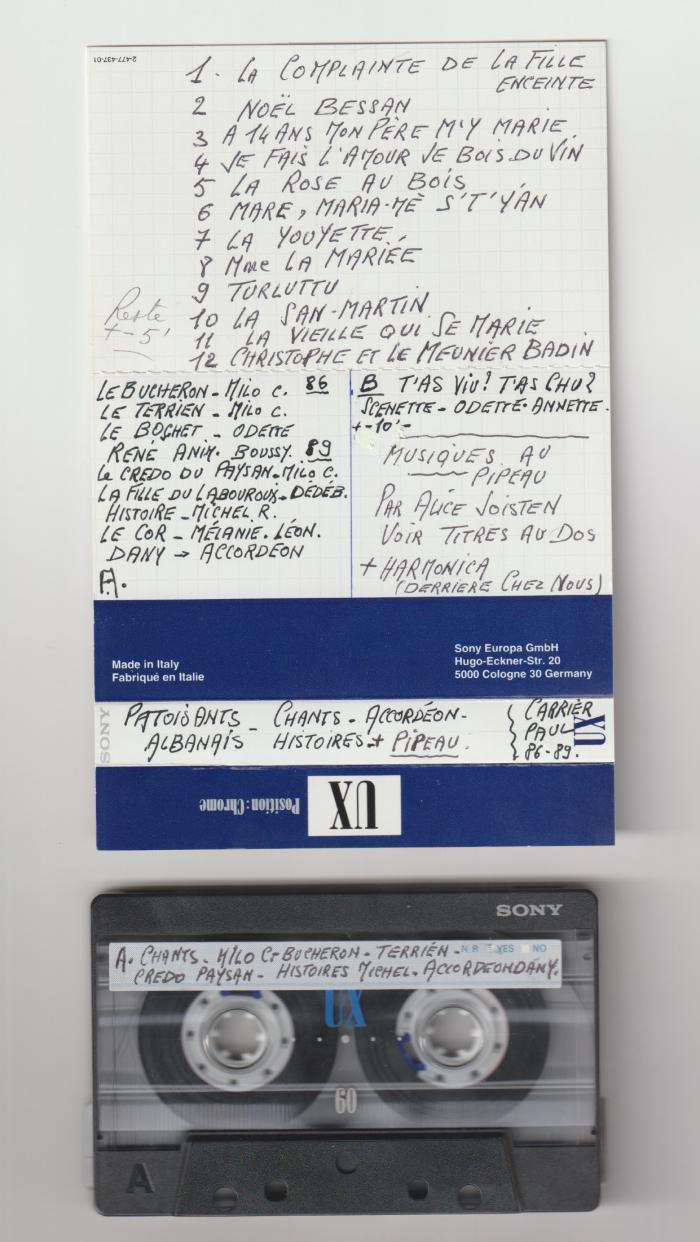 2-477-437-01
1. LA COMPLAINTE DE LA FILLE
ENCEINTE
2 NOËL BESSAN
3 A 14 ANS MON PÈRE M'Y MARIE
4 JE FAIS L'AMOUR JE BOIS DU VIN
5 LA ROSE AU BOIS
6 MARE, MARIA-MÈ S'T'YÁN
7 LA YOUYETTE
8 Mme LA MARIÉE
9 TURLUTTU
10 LA SAN-MARTIN
11 LA VIEILLE QUI SE MARIE
12 CHRISTOPHE ET LE MEUNIER BADIN
Reste
+-5'
LE BUCHERON - MILO C. 86
LE TERRIEN - MILO C.
LE BOCHET - ODETTE
RENÉ ANIM. BOUSSY. 89
LE CREDO DU PAYSAN - MILO C.
LA FILLE DU LABOUROUX - DÉDÉB.
HISTOIRE - MICHEL R.
LE COR - MÉLANIE. LÉON.
DANY → ACCORDÉON
A.
B T'AS VIU? T'AS CHU?
SCENETTE - ODETTE - ANNETTE.
+-10'-
MUSIQUES AU
PIPEAU
PAR ALICE JOISTEN
VOIR TITRES AU DOS
+ HARMONICA
(DERRIERE CHEZ NOUS)
Made in Italy
Fabriqué en Italie
Sony Europa GmbH
Hugo-Eckner-Str. 20
5000 Cologne 30 Germany
SONY
PATOISANTS - CHANTS - ACCORDÉON -
ALBANAIS HISTOIRES + PIPEAU.
CARRIER
PAUL
86-89.
UX
Position: Chrome
UX
SONY
A. CHANTS - MILO C - BUCHERON - TERRIEN -
N.R YES NO
CREDO PAYSAN - HISTOIRES MICHEL. ACCORDEON DANY.
UX
60
A